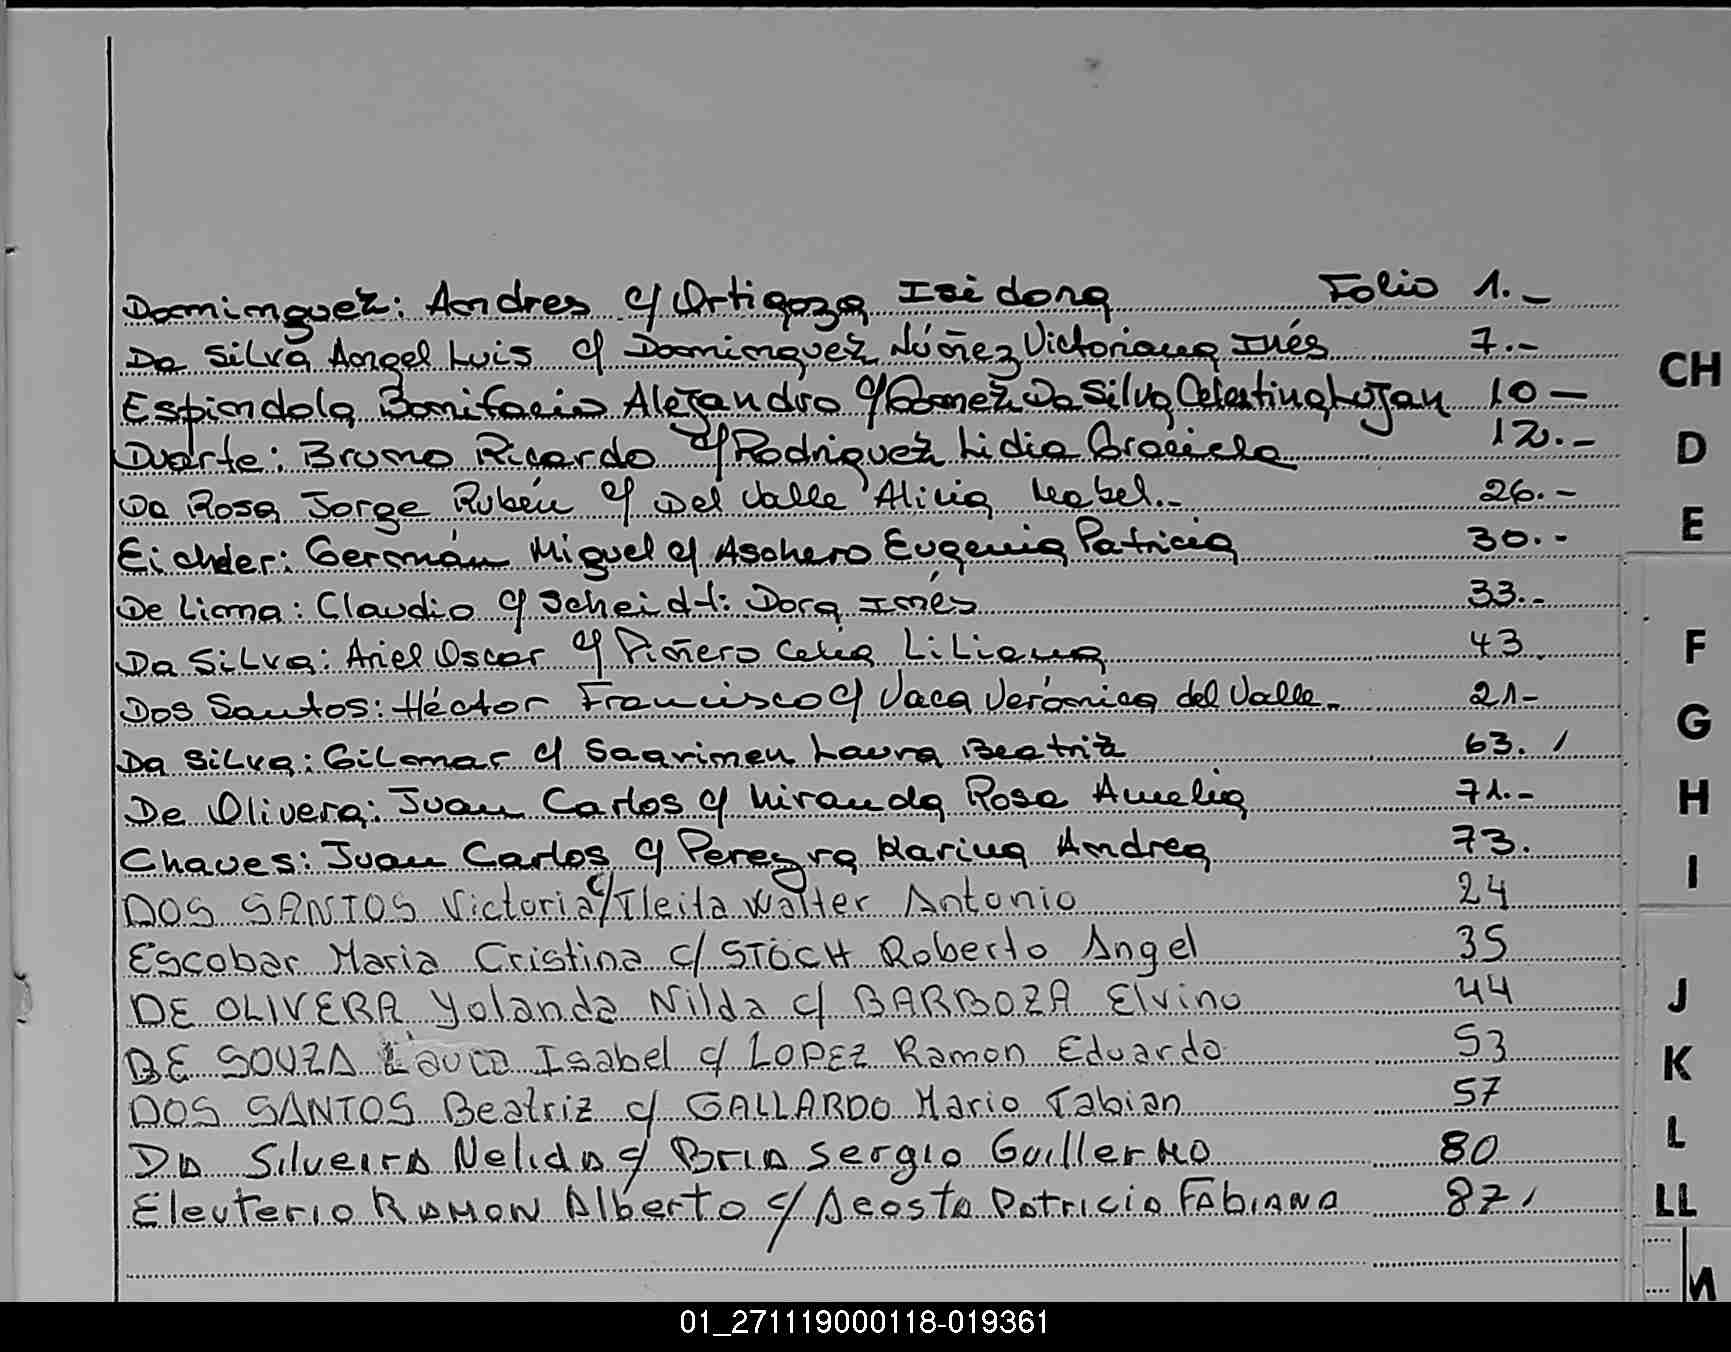 Dominguez: Andres c/ Ortigoza Isidora Folio 1.-
Da Silva Angel Luis c/ Dominguez Núñez Victoriana Inés 7.-
Espindola Bonifacio Alejandro c/ Gomez Da Silva Celestina Lujan 10-
Duarte: Bruno Ricardo c/ Rodriguez Lidia Graciela 12.-
Da Rosa Jorge Rubén c/ Del Valle Alicia Mabel.- 26.-
Eichler: Germán Miguel c/ Aschero Eugenia Patricia 30.-
De Lima: Claudio c/ Scheidt: Dora Inés 33.-
Da Silva: Ariel Oscar c/ Piñero Celia Liliana 43.
Dos Santos: Héctor Francisco c/ Vaca Verónica del Valle.- 21-
Da Silva: Gilmar c/ Saarimen Laura Beatriz 63.
De Olivera: Juan Carlos c/ Miranda Rosa Amelia 71.-
Chaves: Juan Carlos c/ Pereyra Karina Andrea 73.
DOS SANTOS Victoria c/ Ileita Walter Antonio 24
Escobar Maria Cristina c/ STÖCH Roberto Angel 35
DE OLIVERA Yolanda Nilda c/ BARBOZA Elvino 44
DE SOUZA Laura Isabel c/ LOPEZ Ramon Eduardo 53
DOS SANTOS Beatriz c/ GALLARDO Mario Fabian 57
Da Silveira Nelida c/ Bria Sergio Guillermo 80
Eleuterio Ramon Alberto c/ Acosta Patricia Fabiana 87
CH
D
E
F
G
H
I
J
K
L
LL
01_271119000118-019361